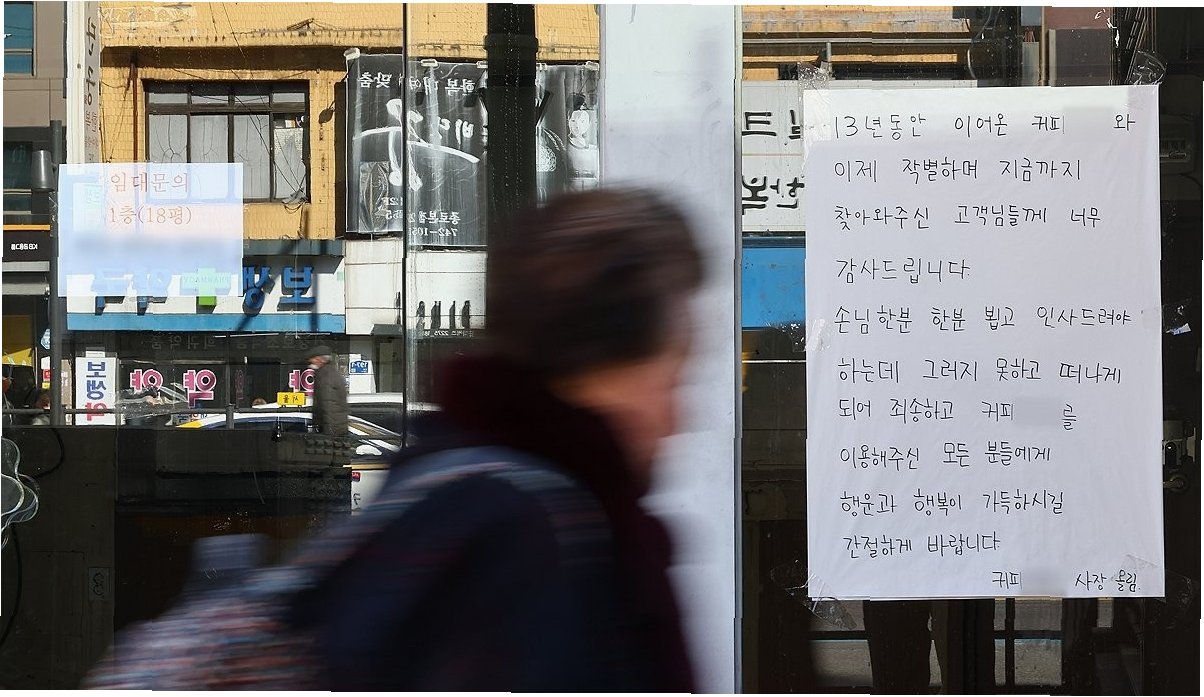 임대문의
1층(18평)
맞춤
한복
742-105
보생
약국
PHARMACY
보생약
약
약
약
서울
13년동안 이어온 커피 와
이제 작별하며 지금까지
찾아와주신 고객님들께 너무
감사드립니다.
손님한분 한분 뵙고 인사드려야
하는데 그러지 못하고 떠나게
되어 죄송하고 커피 를
이용해주신 모든 분들에게
행운과 행복이 가득하시길
간절하게 바랍니다.
커피 사장 올림.